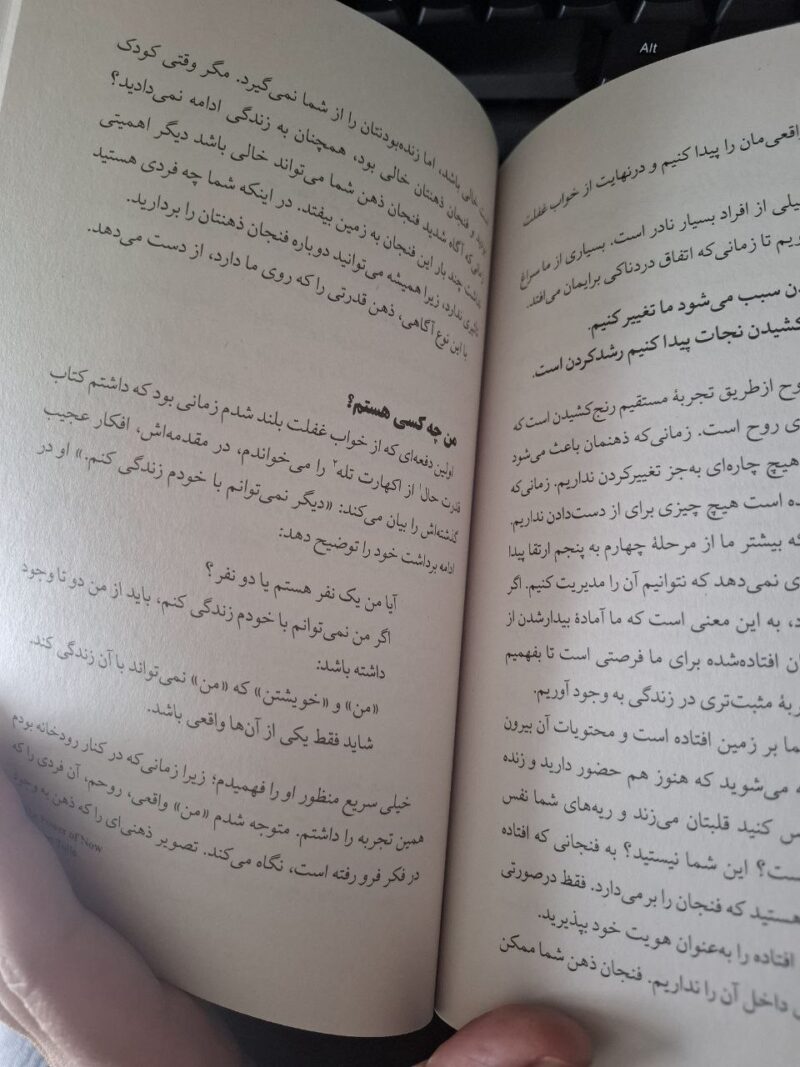 واقعی‌مان را پیدا کنیم و درنهایت از خواب غفلت
خیلی از افراد بسیار نادر است. بسیاری از ما سراغ
ریم تا زمانی‌که اتفاق دردناکی برایمان می‌افتد.
دن سبب می‌شود ما تغییر کنیم.
کشیدن نجات پیدا کنیم رشدکردن است.
وح ازطریق تجربۀ مستقیم رنج‌کشیدن است که
ی روح است. زمانی‌که ذهنمان باعث می‌شود
هیچ چاره‌ای به‌جز تغییرکردن نداریم. زمانی‌که
ده است هیچ چیزی برای از دست‌دادن نداریم.
که بیشتر ما از مرحلۀ چهارم به پنجم ارتقا پیدا
ی نمی‌دهد که نتوانیم آن را مدیریت کنیم. اگر
د، به این معنی است که ما آمادۀ بیدارشدن از
ان افتاده‌شده برای ما فرصتی است تا بفهمیم
ربۀ مثبت‌تری در زندگی به وجود آوریم.
ما بر زمین افتاده است و محتویات آن بیرون
ه می‌شوید که هنوز هم حضور دارید و زنده
س کنید قلبتان می‌زند و ریه‌های شما نفس
ست؟ این شما نیستید؟ به فنجانی که افتاده
هستید که فنجان را برمی‌دارد. فقط درصورتی
افتاده را به‌عنوان هویت خود بپذیرید.
داخل آن را نداریم. فنجان ذهن شما ممکن
است خالی باشد، اما زنده‌بودنتان را از شما نمی‌گیرد. مگر وقتی کودک
بودید و فنجان ذهنتان خالی بود، همچنان به زندگی ادامه نمی‌دادید؟
زمانی که آگاه شدید فنجان ذهن شما می‌تواند خالی باشد دیگر اهمیتی
نداشت چند بار این فنجان به زمین بیفتد. در اینکه شما چه فردی هستید
تأثیری ندارد، زیرا همیشه می‌توانید دوباره فنجان ذهنتان را بردارید.
با این نوع آگاهی، ذهن قدرتی را که روی ما دارد، از دست می‌دهد.
من چه کسی هستم؟
اولین دفعه‌ای که از خواب غفلت بلند شدم زمانی بود که داشتم کتاب
قدرت حال۱ از اکهارت تله۲ را می‌خواندم، در مقدمه‌اش، افکار عجیب
گذشته‌اش را بیان می‌کند: «دیگر نمی‌توانم با خودم زندگی کنم.» او در
ادامه برداشت خود را توضیح دهد:
آیا من یک نفر هستم یا دو نفر؟
اگر من نمی‌توانم با خودم زندگی کنم، باید از من دو تا وجود
داشته باشد:
«من» و «خویشتن» که «من» نمی‌تواند با آن زندگی کند.
شاید فقط یکی از آن‌ها واقعی باشد.
خیلی سریع منظور او را فهمیدم؛ زیرا زمانی‌که در کنار رودخانه بودم
همین تجربه را داشتم. متوجه شدم «من» واقعی، روحم، آن فردی را که
در فکر فرو رفته است، نگاه می‌کند. تصویر ذهنی‌ای را که ذهن به وجود
Power of Now
Alt